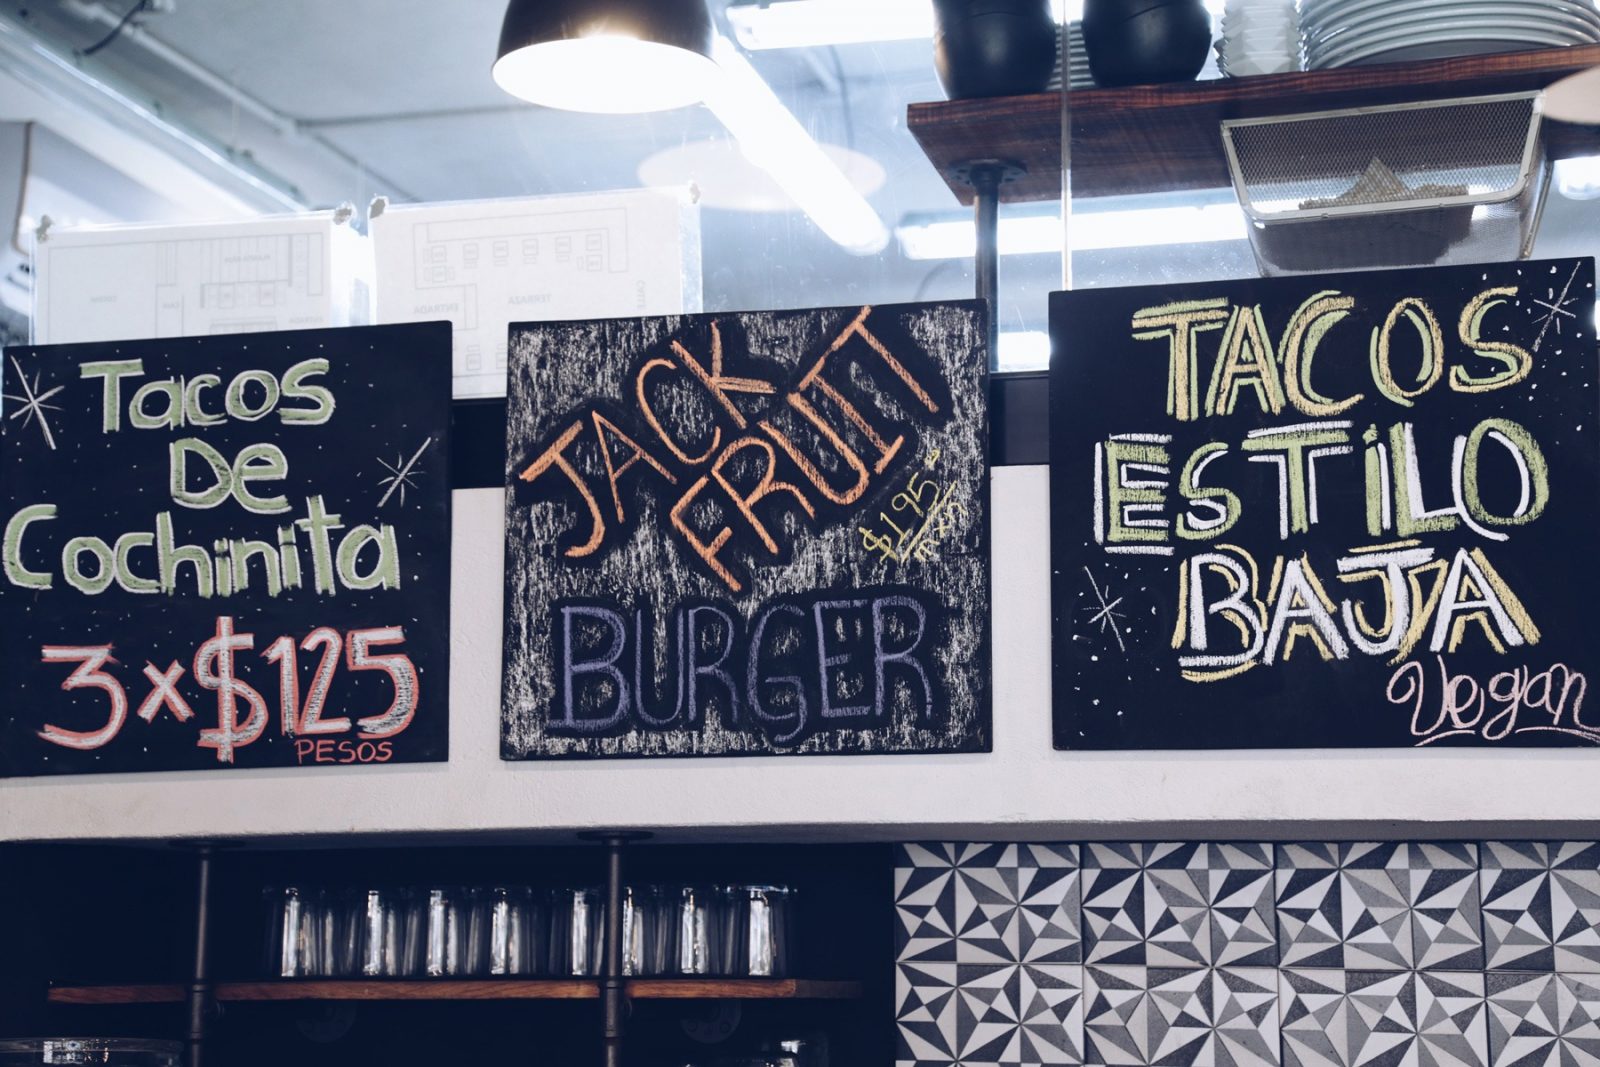 Tacos
De
Cochinita
3x$125
PESOS
JACK
FRUIT
$195
mxn
BURGER
TACOS
ESTILO
BAJA
Vegan
ENTRADA
TERRAZA